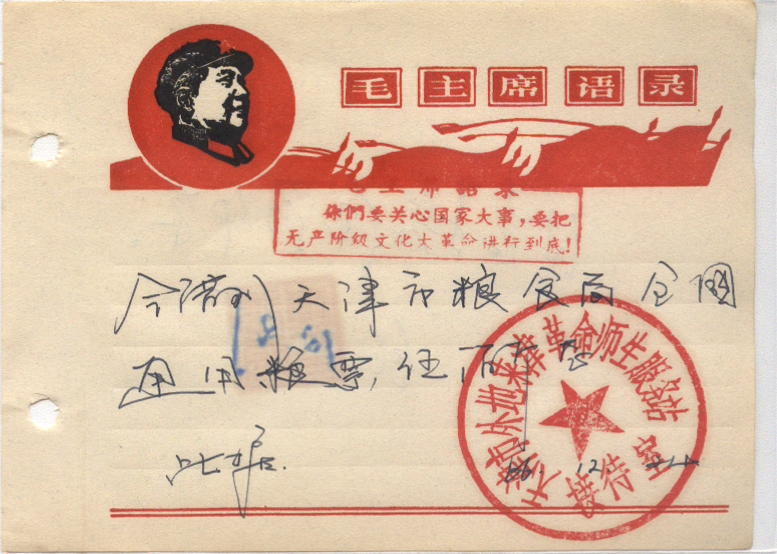 毛主席语录
毛主席语录
你們要关心国家大事,要把
无产阶级文化大革命进行到底!
今借到天津市粮食局全国
通用粮票,伍佰斤
此据.
66.12
天津 外地来津革命师生服务站
接待室